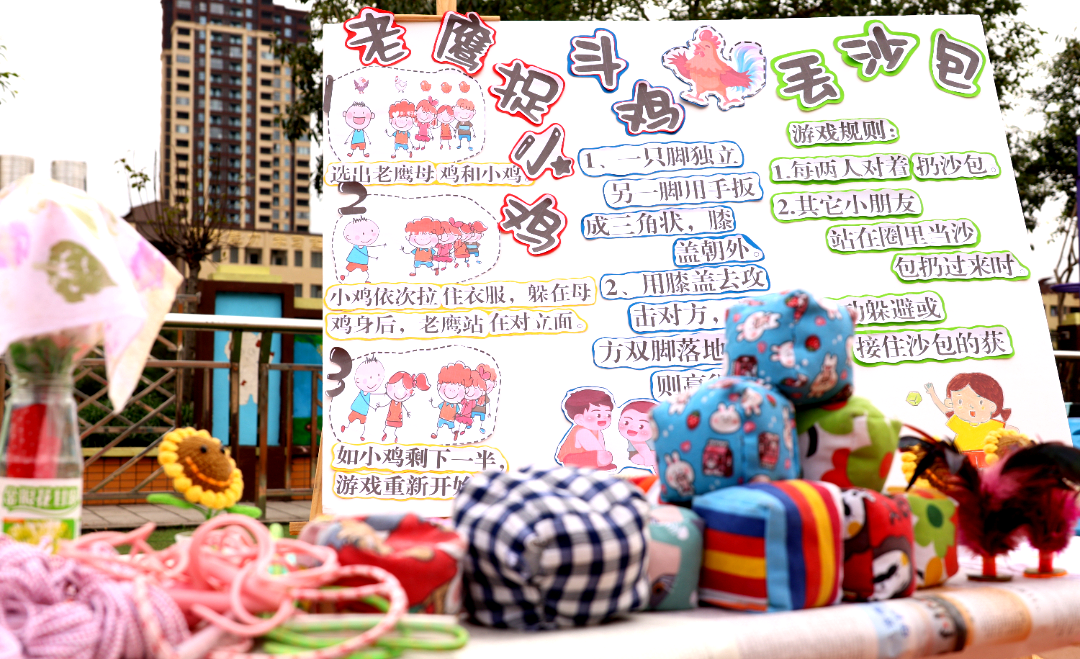 老鹰捉小鸡
1
选出老鹰母鸡和小鸡
2
小鸡依次拉住衣服，躲在母
鸡身后，老鹰站在对立面。
3
如小鸡剩下一半，
游戏重新开始
斗鸡
1、一只脚独立
另一脚用手扳
成三角状，膝
盖朝外。
2、用膝盖去攻
击对方，
方双脚落地
则
丢沙包
游戏规则：
1.每两人对着扔沙包。
2.其它小朋友
站在圈里当沙
包扔过来时
动躲避或
接住沙包的获